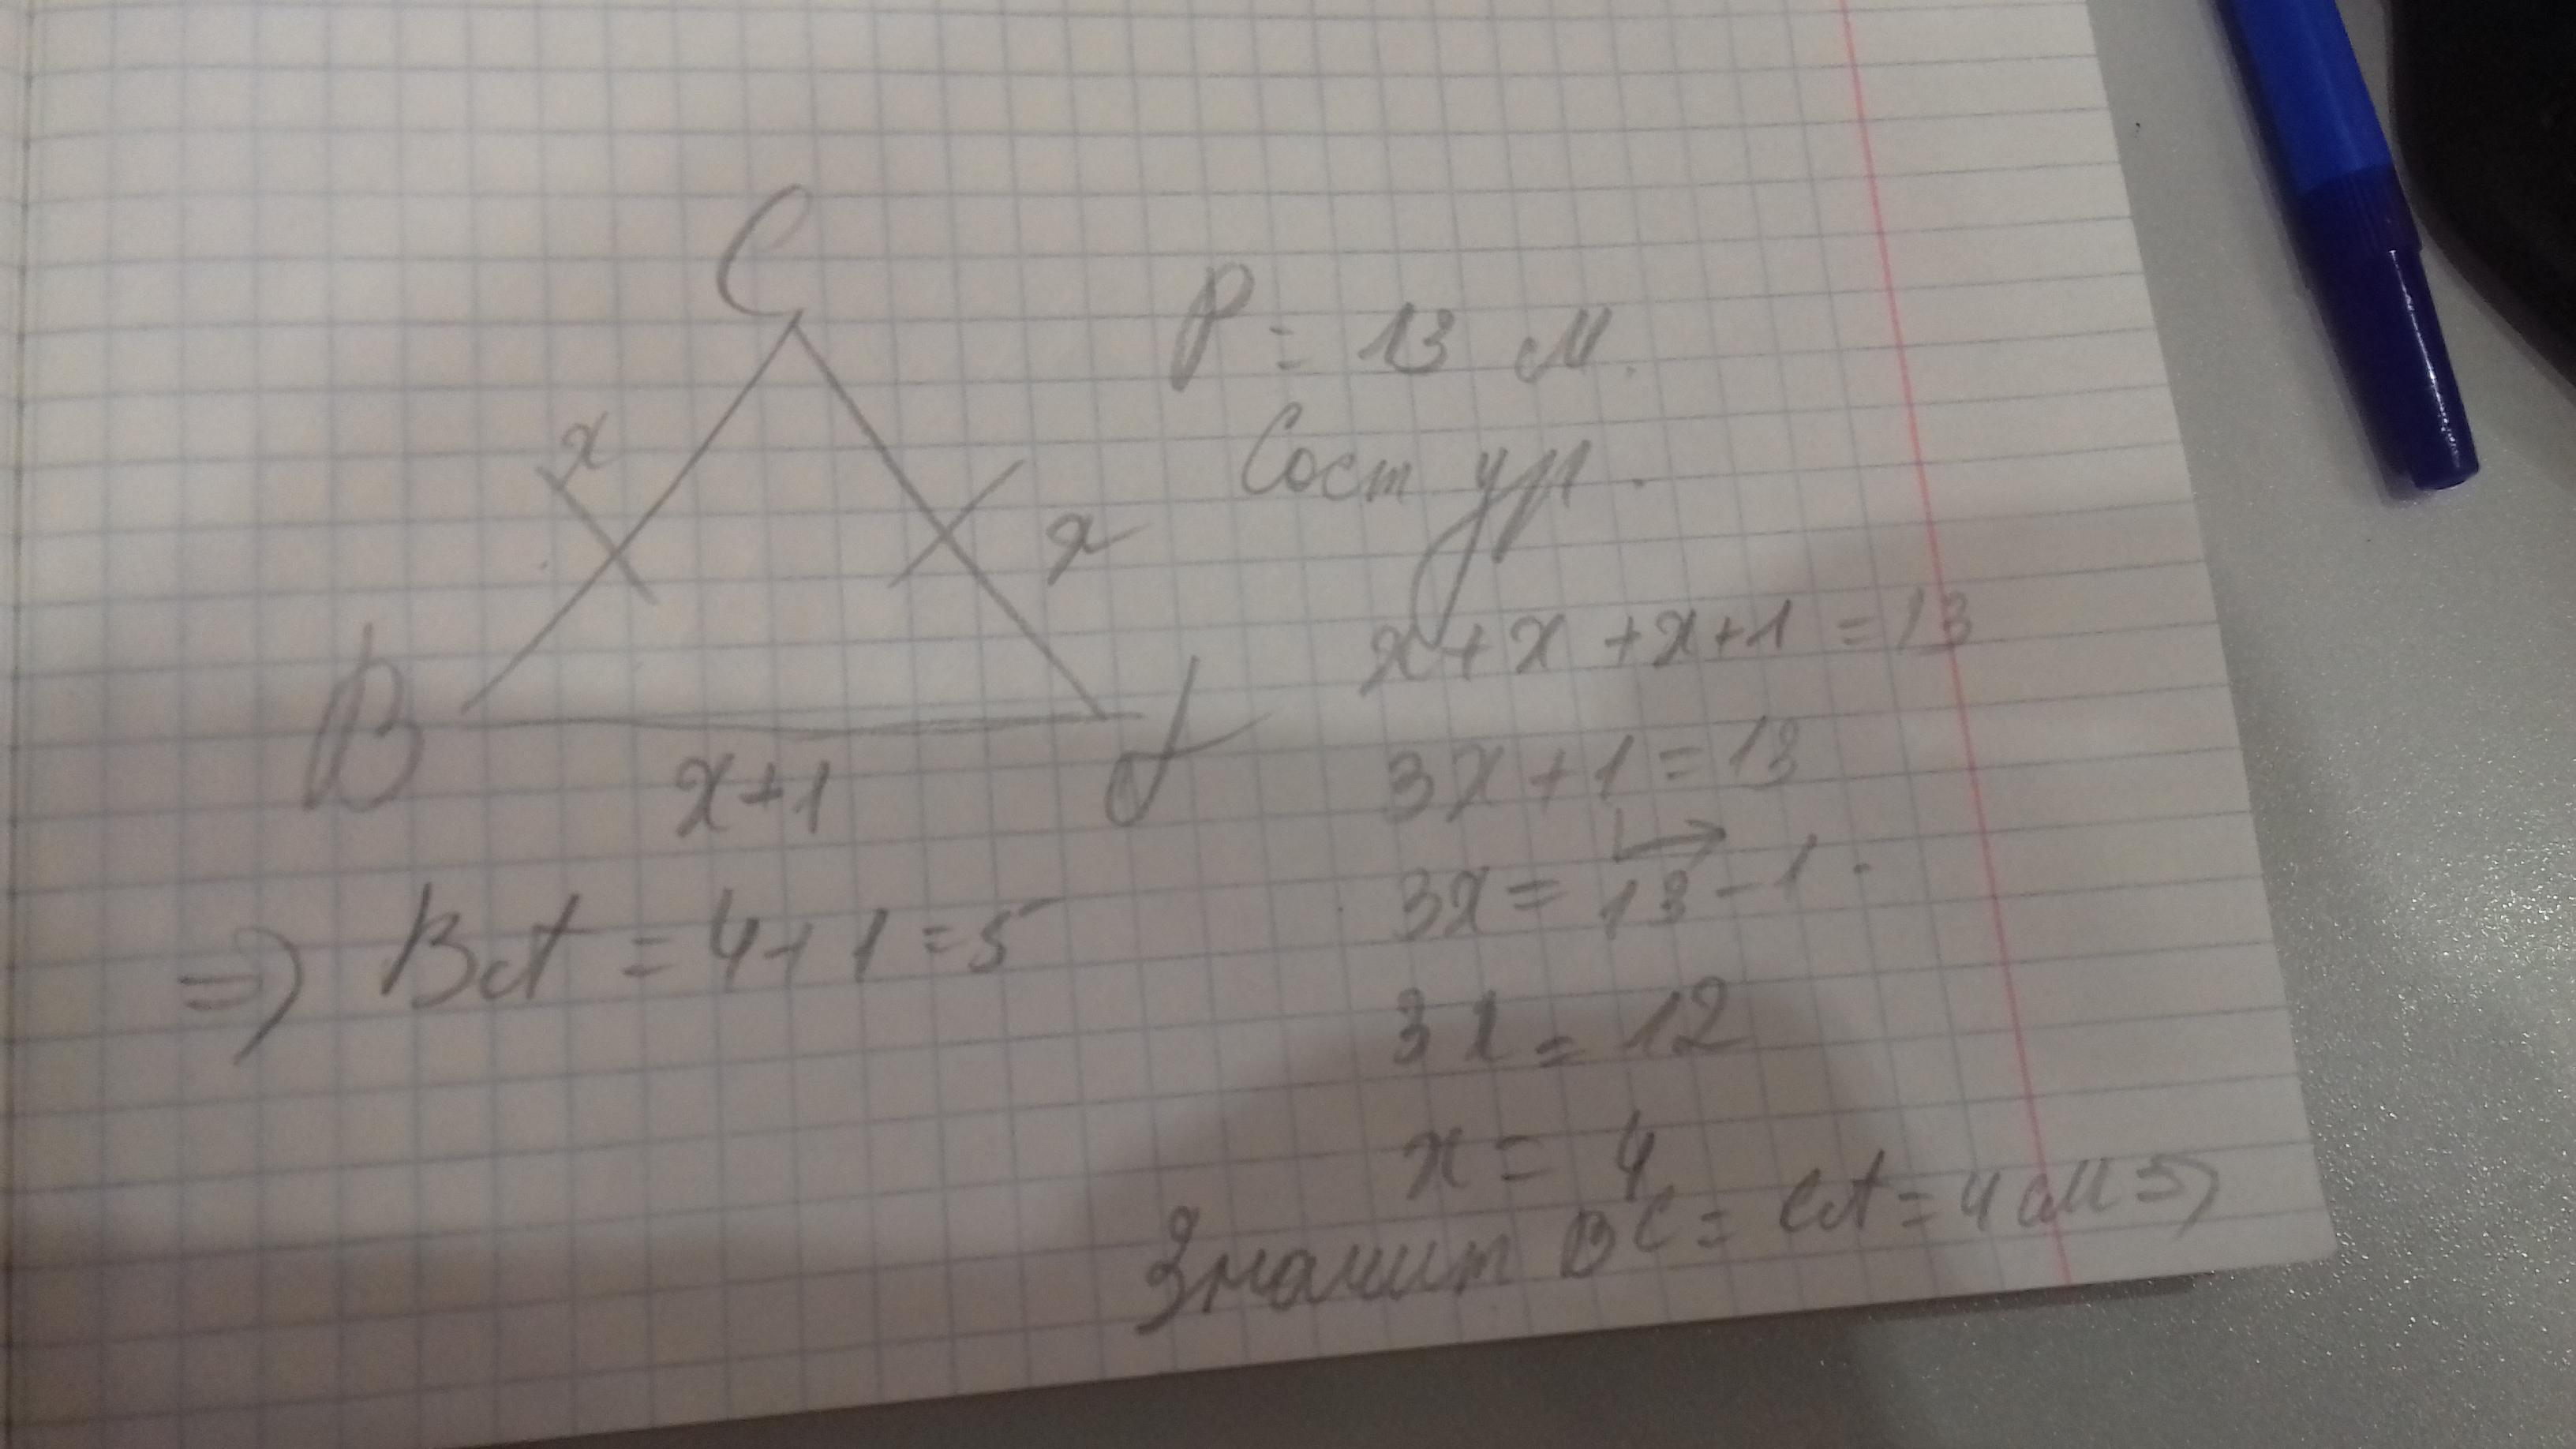 C
P = 13 м.
x
Сост ур.
x
x + x + x + 1 = 13
B
A
x+1
3x + 1 = 13
3x = 13 - 1.
⇒ BA = 4 + 1 = 5
3x = 12
x = 4
Значит BC = CA = 4 см ⇒